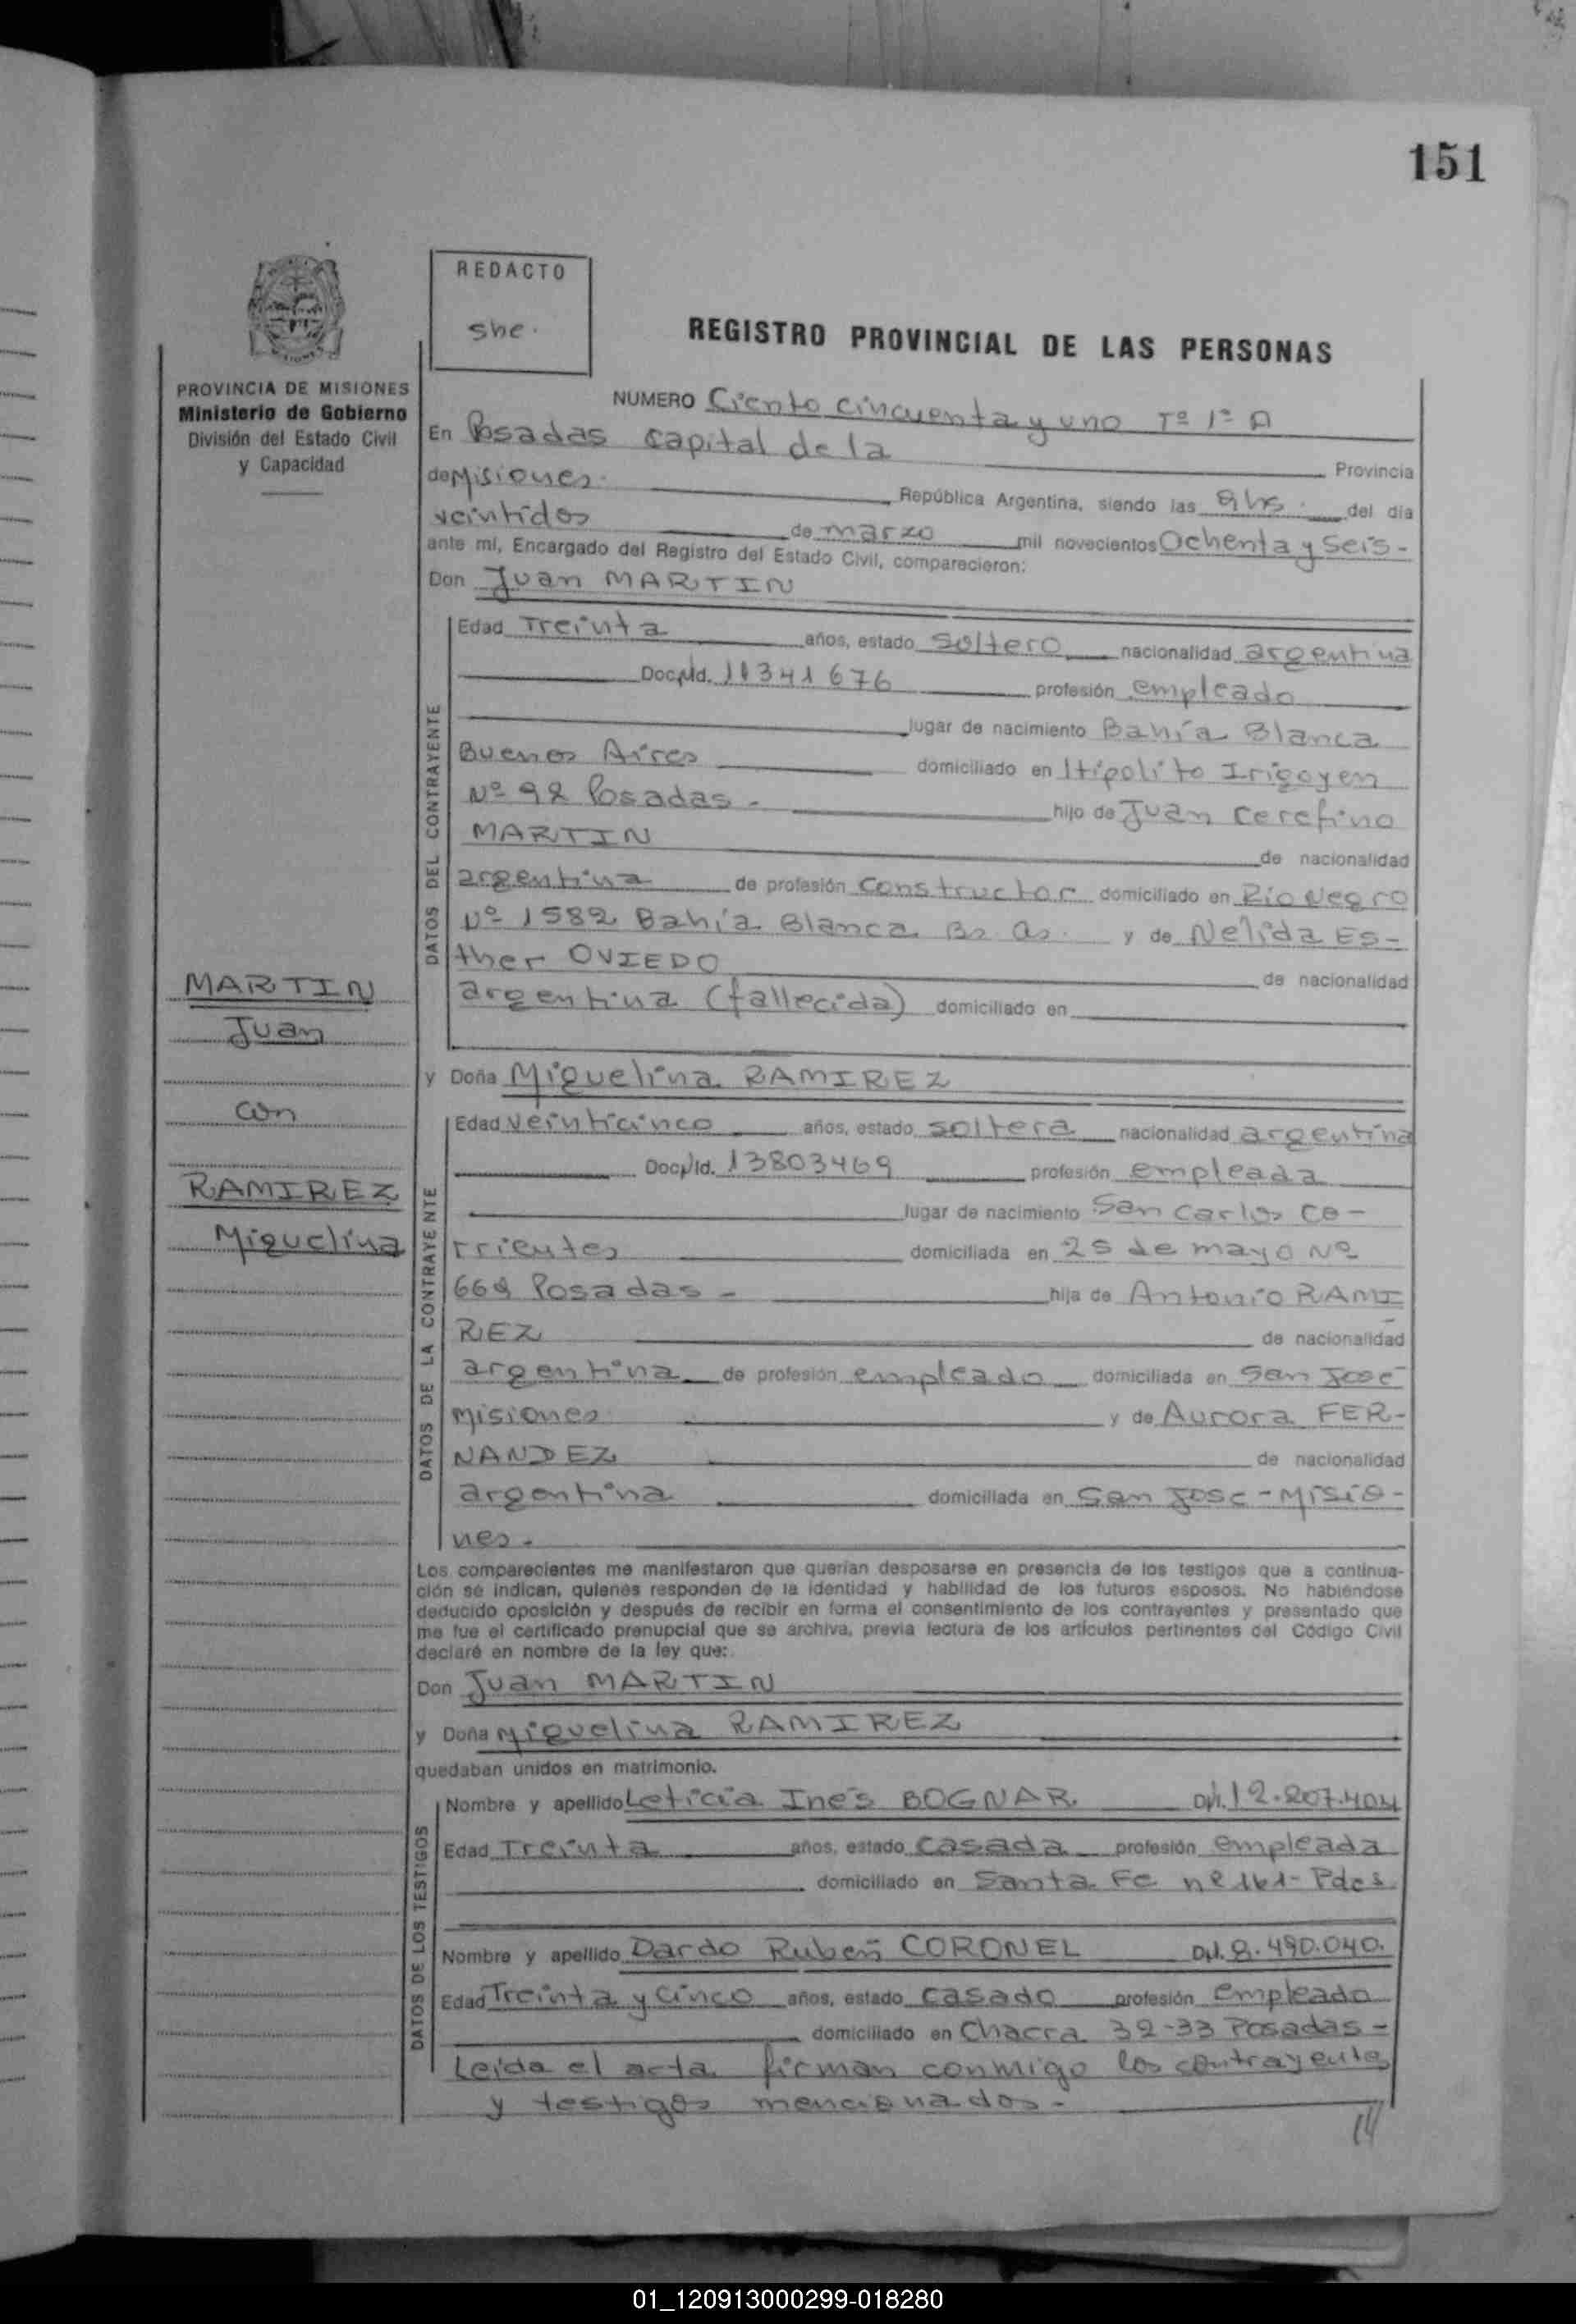 151
REDACTO
she.
REGISTRO PROVINCIAL DE LAS PERSONAS
PROVINCIA DE MISIONES
Ministerio de Gobierno
División del Estado Civil
y Capacidad
NUMERO Ciento cincuenta y uno Tº 1º A
En Posadas capital de la Provincia
de Misiones. República Argentina, siendo las 9 hs. del día
veintidos de marzo mil novecientos Ochenta y seis-
ante mí, Encargado del Registro del Estado Civil, comparecieron:
Don Juan MARTIN
DATOS DEL CONTRAYENTE
Edad Treinta años, estado soltero nacionalidad argentina
Doc. Id. 11341676 profesión empleado
lugar de nacimiento Bahía Blanca
Buenos Aires domiciliado en Hipolito Irigoyen
Nº 92 Posadas.- hijo de Juan Cerefino
MARTIN de nacionalidad
argentina de profesión constructor domiciliado en Rio Negro
Nº 1582 Bahía Blanca Bs As. y de Nelida Es-
ther OVIEDO de nacionalidad
argentina (fallecida) domiciliado en
MARTIN
Juan
con
RAMIREZ
Miguelina
y Doña Miguelina RAMIREZ
DATOS DE LA CONTRAYENTE
Edad veinticinco años, estado soltera nacionalidad argentina
Doc. Id. 13803469 profesión empleada
lugar de nacimiento San Carlos Co-
rrientes domiciliada en 25 de mayo Nº
669 Posadas - hija de Antonio RAMI
REZ de nacionalidad
argentina de profesión empleado domiciliada en San José
Misiones y de Aurora FER-
NANDEZ de nacionalidad
argentina domiciliada en San Jose-Misio-
nes.-
Los comparecientes me manifestaron que querían desposarse en presencia de los testigos que a continua-
ción se indican, quienes responden de la identidad y habilidad de los futuros esposos. No habiéndose
deducido oposición y después de recibir en forma el consentimiento de los contrayentes y presentado que
me fue el certificado prenupcial que se archiva, previa lectura de los artículos pertinentes del Código Civil
declaré en nombre de la ley que:
Don Juan MARTIN
y Doña Miguelina RAMIREZ
quedaban unidos en matrimonio.
DATOS DE LOS TESTIGOS
Nombre y apellido Leticia Inés BOGNAR DNI. 12.207.404
Edad Treinta años, estado casada profesión empleada
domiciliado en Santa Fe nº 161- Pdas
Nombre y apellido Dardo Rubén CORONEL DNI. 8.490.040.
Edad Treinta y cinco años, estado casado profesión empleado
domiciliado en Chacra 32-33 Posadas-
Leida el acta firman conmigo los contrayentes
y testigos mencionados.-
01_120913000299-018280